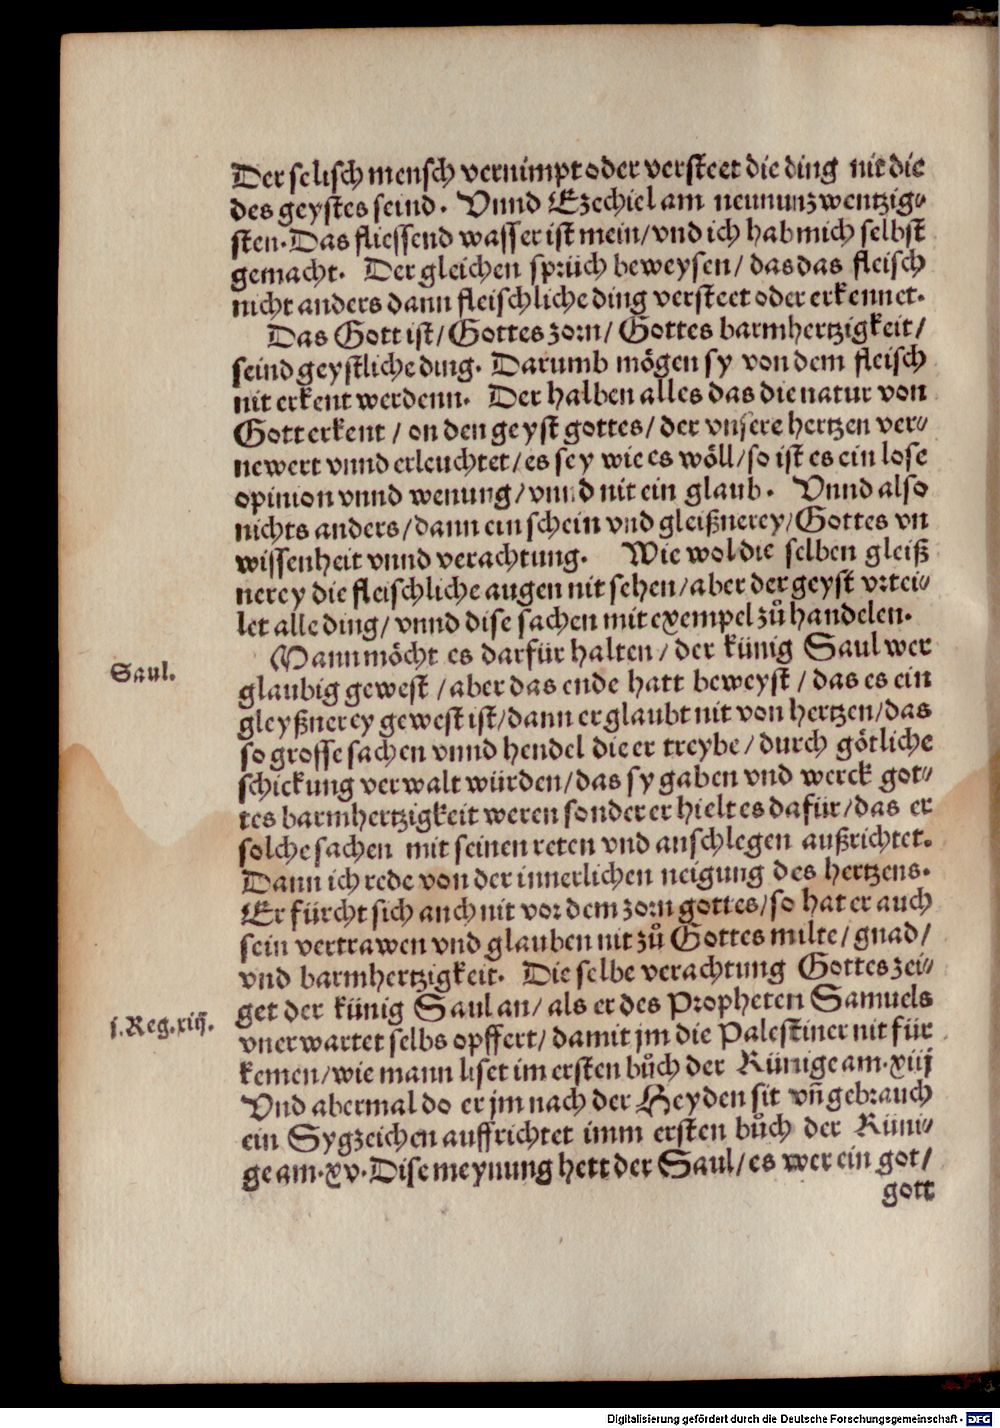 Der selisch mensch vernimpt oder versteet die ding nit die
des geystes seind. Vnnd Ezechiel am neununzwentzig⸗
sten. Das fliessend wasser ist mein/ vnd ich hab mich selbst
gemacht. Der gleichen sprüch beweysen/ das das fleisch
nicht anders dann fleischliche ding versteet oder erkennet.
Das Gott ist/ Gottes zorn/ Gottes barmhertzigkeit/
seind geystliche ding. Darumb mögen sy von dem fleisch
nit erkent werdenn. Der halben alles das die natur von
Gott erkent / on den geyst gottes/ der vnsere hertzen ver⸗
newert vnnd erleuchtet/ es sey wie es wöll/ so ist es ein lose
opinion vnnd wenung/ vnnd nit ein glaub. Vnnd also
nichts anders/ dann ein schein vnd gleißnerey/ Gottes vn
wissenheit vnnd verachtung. Wie wol die selben gleiß
nerey die fleischliche augen nit sehen/ aber der geyst vrtei⸗
let alle ding/ vnnd dise sachen mit exempel zů handelen.
Saul.
Mann möcht es darfür halten/ der künig Saul wer
glaubig gewest / aber das ende hatt beweyst / das es ein
gleyßnerey gewest ist/ dann er glaubt nit von hertzen/ das
so grosse sachen vnnd hendel die er treybe/ durch götliche
schickung verwalt würden/ das sy gaben vnd werck got⸗
tes barmhertzigkeit weren sonder er hielt es dafür/ das er
solche sachen mit seinen reten vnd anschlegen außrichtet.
Dann ich rede von der innerlichen neigung des hertzens.
Er fürcht sich auch nit vor dem zorn gottes/ so hat er auch
sein vertrawen vnd glauben nit zů Gottes milte/ gnad/
vnd barmhertzigkeit. Die selbe verachtung Gottes zei⸗
get der künig Saul an/ als er des Propheten Samuels
j.Reg.xiij.
vnerwartet selbs opffert/ damit jm die Palestiner nit für
kemen/ wie mann liset im ersten bůch der Künige am.xiij
Vnd abermal do er jm nach der Heyden sit vñ gebrauch
ein Sygzeichen auffrichtet imm ersten bůch der Küni⸗
ge am.xv. Dise meynung hett der Saul/ es wer ein got/
gott
Digitalisierung gefördert durch die Deutsche Forschungsgemeinschaft - DFG